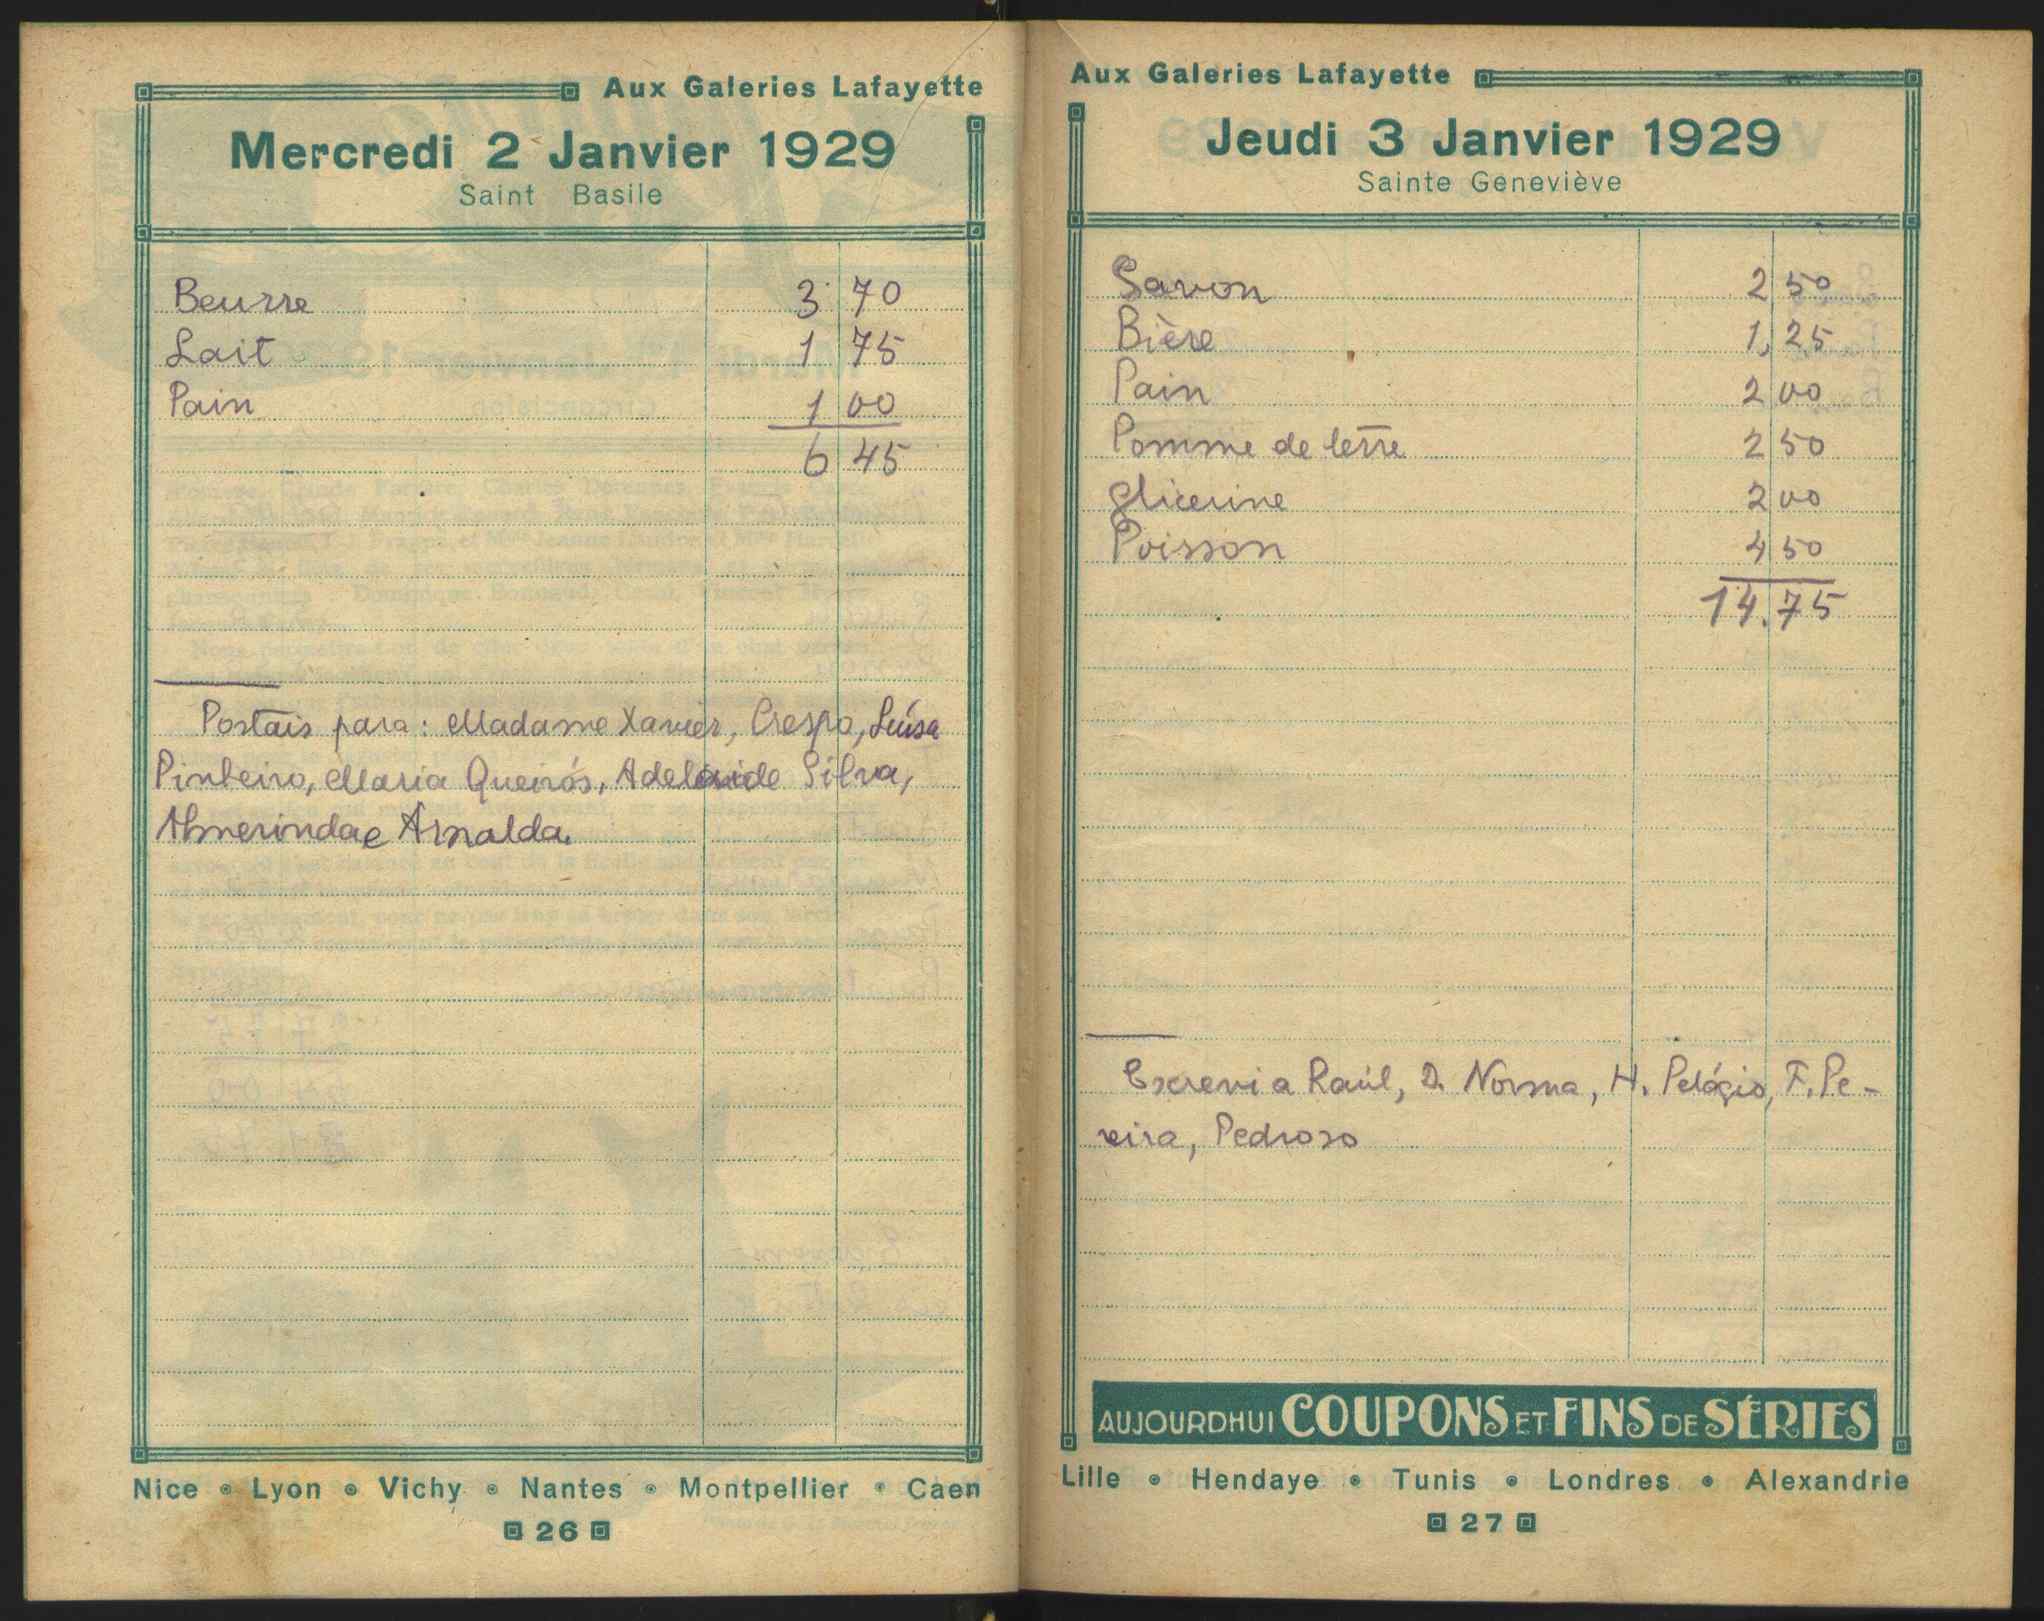 Aux Galeries Lafayette
Mercredi 2 Janvier 1929
Saint Basile
Beurre 3 70
Lait 1 75
Pain 1 00
6 45
Postais para: Madame Xavier, Crespo, Luísa
Pinheiro, Maria Queirós, Adelaide Silva,
Almerinda e Arnalda.
Nice • Lyon • Vichy • Nantes • Montpellier • Caen
26
Aux Galeries Lafayette
Jeudi 3 Janvier 1929
Sainte Geneviève
Savon 2 50
Bière 1,25
Pain 2 00
Pomme de terre 2 50
Glicerine 2 00
Poisson 4 50
14.75
Escrevi a Raúl, D. Norma, H. Pelágio, F. Pe-
reira, Pedroso
AUJOURDHUI COUPONS ET FINS DE SÉRIES
Lille • Hendaye • Tunis • Londres • Alexandrie
27